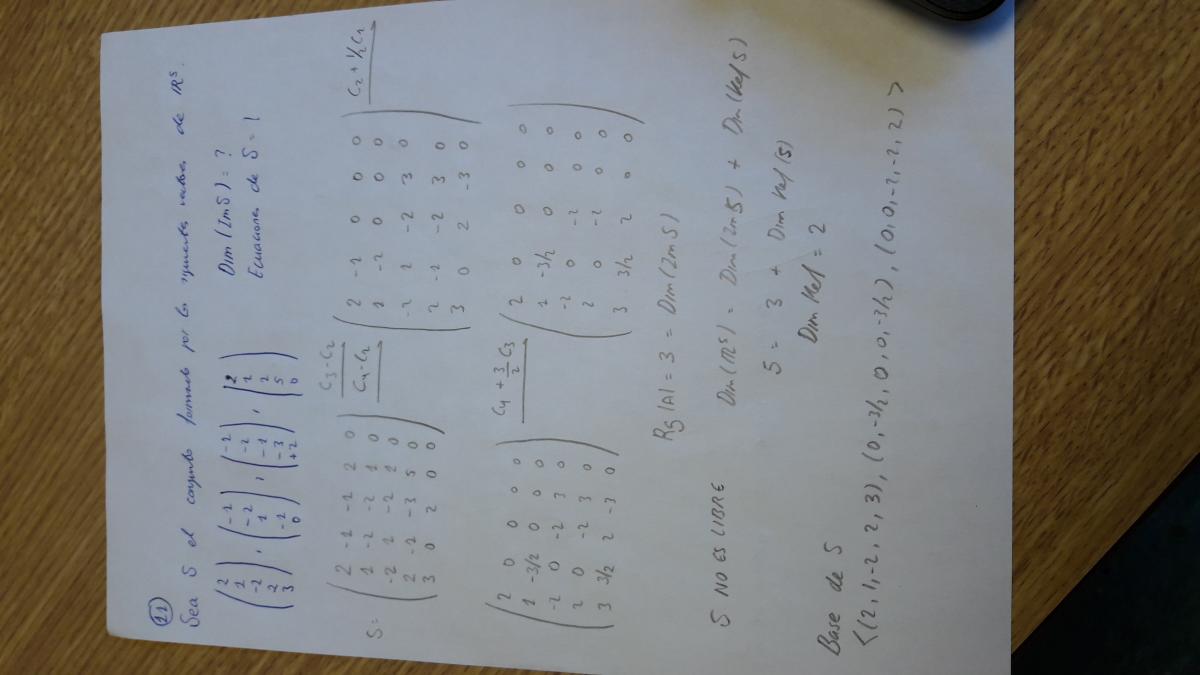 11
Sea S el conjunto formado por los siguientes vectores de IR⁵.
(2 1 -2 2 3), (-1 -2 1 -1 0), (-1 -2 -1 -3 +2), (2 1 2 5 0)
Dim(ImS) = ?
Ecuaciones de S = !
S= ( 2 -1 -1 2 0
1 -2 -2 1 0
-2 1 -2 1 0
2 -2 -3 5 0
3 0 2 0 0 )
C3 - C2
C4 - C2
( 2 -1 0 0 0
1 -2 0 0 0
-2 1 -2 3 0
2 -1 -2 3 0
3 0 2 -3 0 )
C2 + 1/2 C1
( 2 0 0 0 0
1 -3/2 0 0 0
-2 0 -2 3 0
2 0 -2 3 0
3 3/2 2 -3 0 )
C4 + 3/2 C3
( 2 0 0 0 0
1 -3/2 0 0 0
-2 0 -2 0 0
2 0 -2 0 0
3 3/2 2 0 0 )
Rg|A| = 3 = Dim(ImS)
S NO ES LIBRE
Dim(IR⁵) = Dim(ImS) + Dim(Kef S)
5 = 3 + Dim Kef(S)
Dim Kef = 2
Base de S
<(2,1,-2,2,3), (0,-3/2,0,0,-3/2), (0,0,-2,-2,2)>